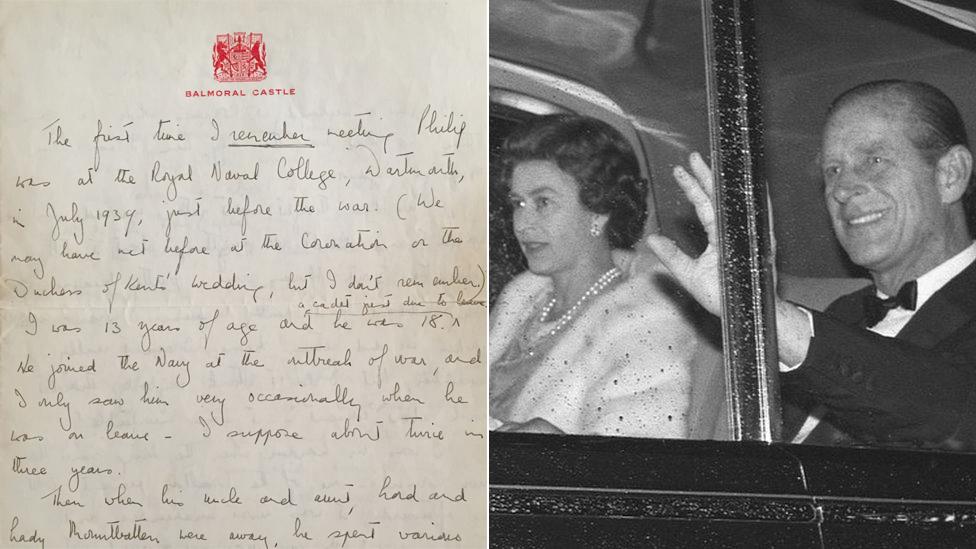 BALMORAL CASTLE
The first time I remember meeting Philip
was at the Royal Naval College, Dartmouth,
in July 1939, just before the war. (We
may have met before at the Coronation or the
Duchess of Kent's wedding, but I don't remember)
a cadet just due to leave
I was 13 years of age and he was 18. ^
He joined the Navy at the outbreak of war, and
I only saw him very occasionally when he
was on leave – I suppose about twice in
three years.
Then when his uncle and aunt, Lord and
Lady Mountbatten were away, he spent various